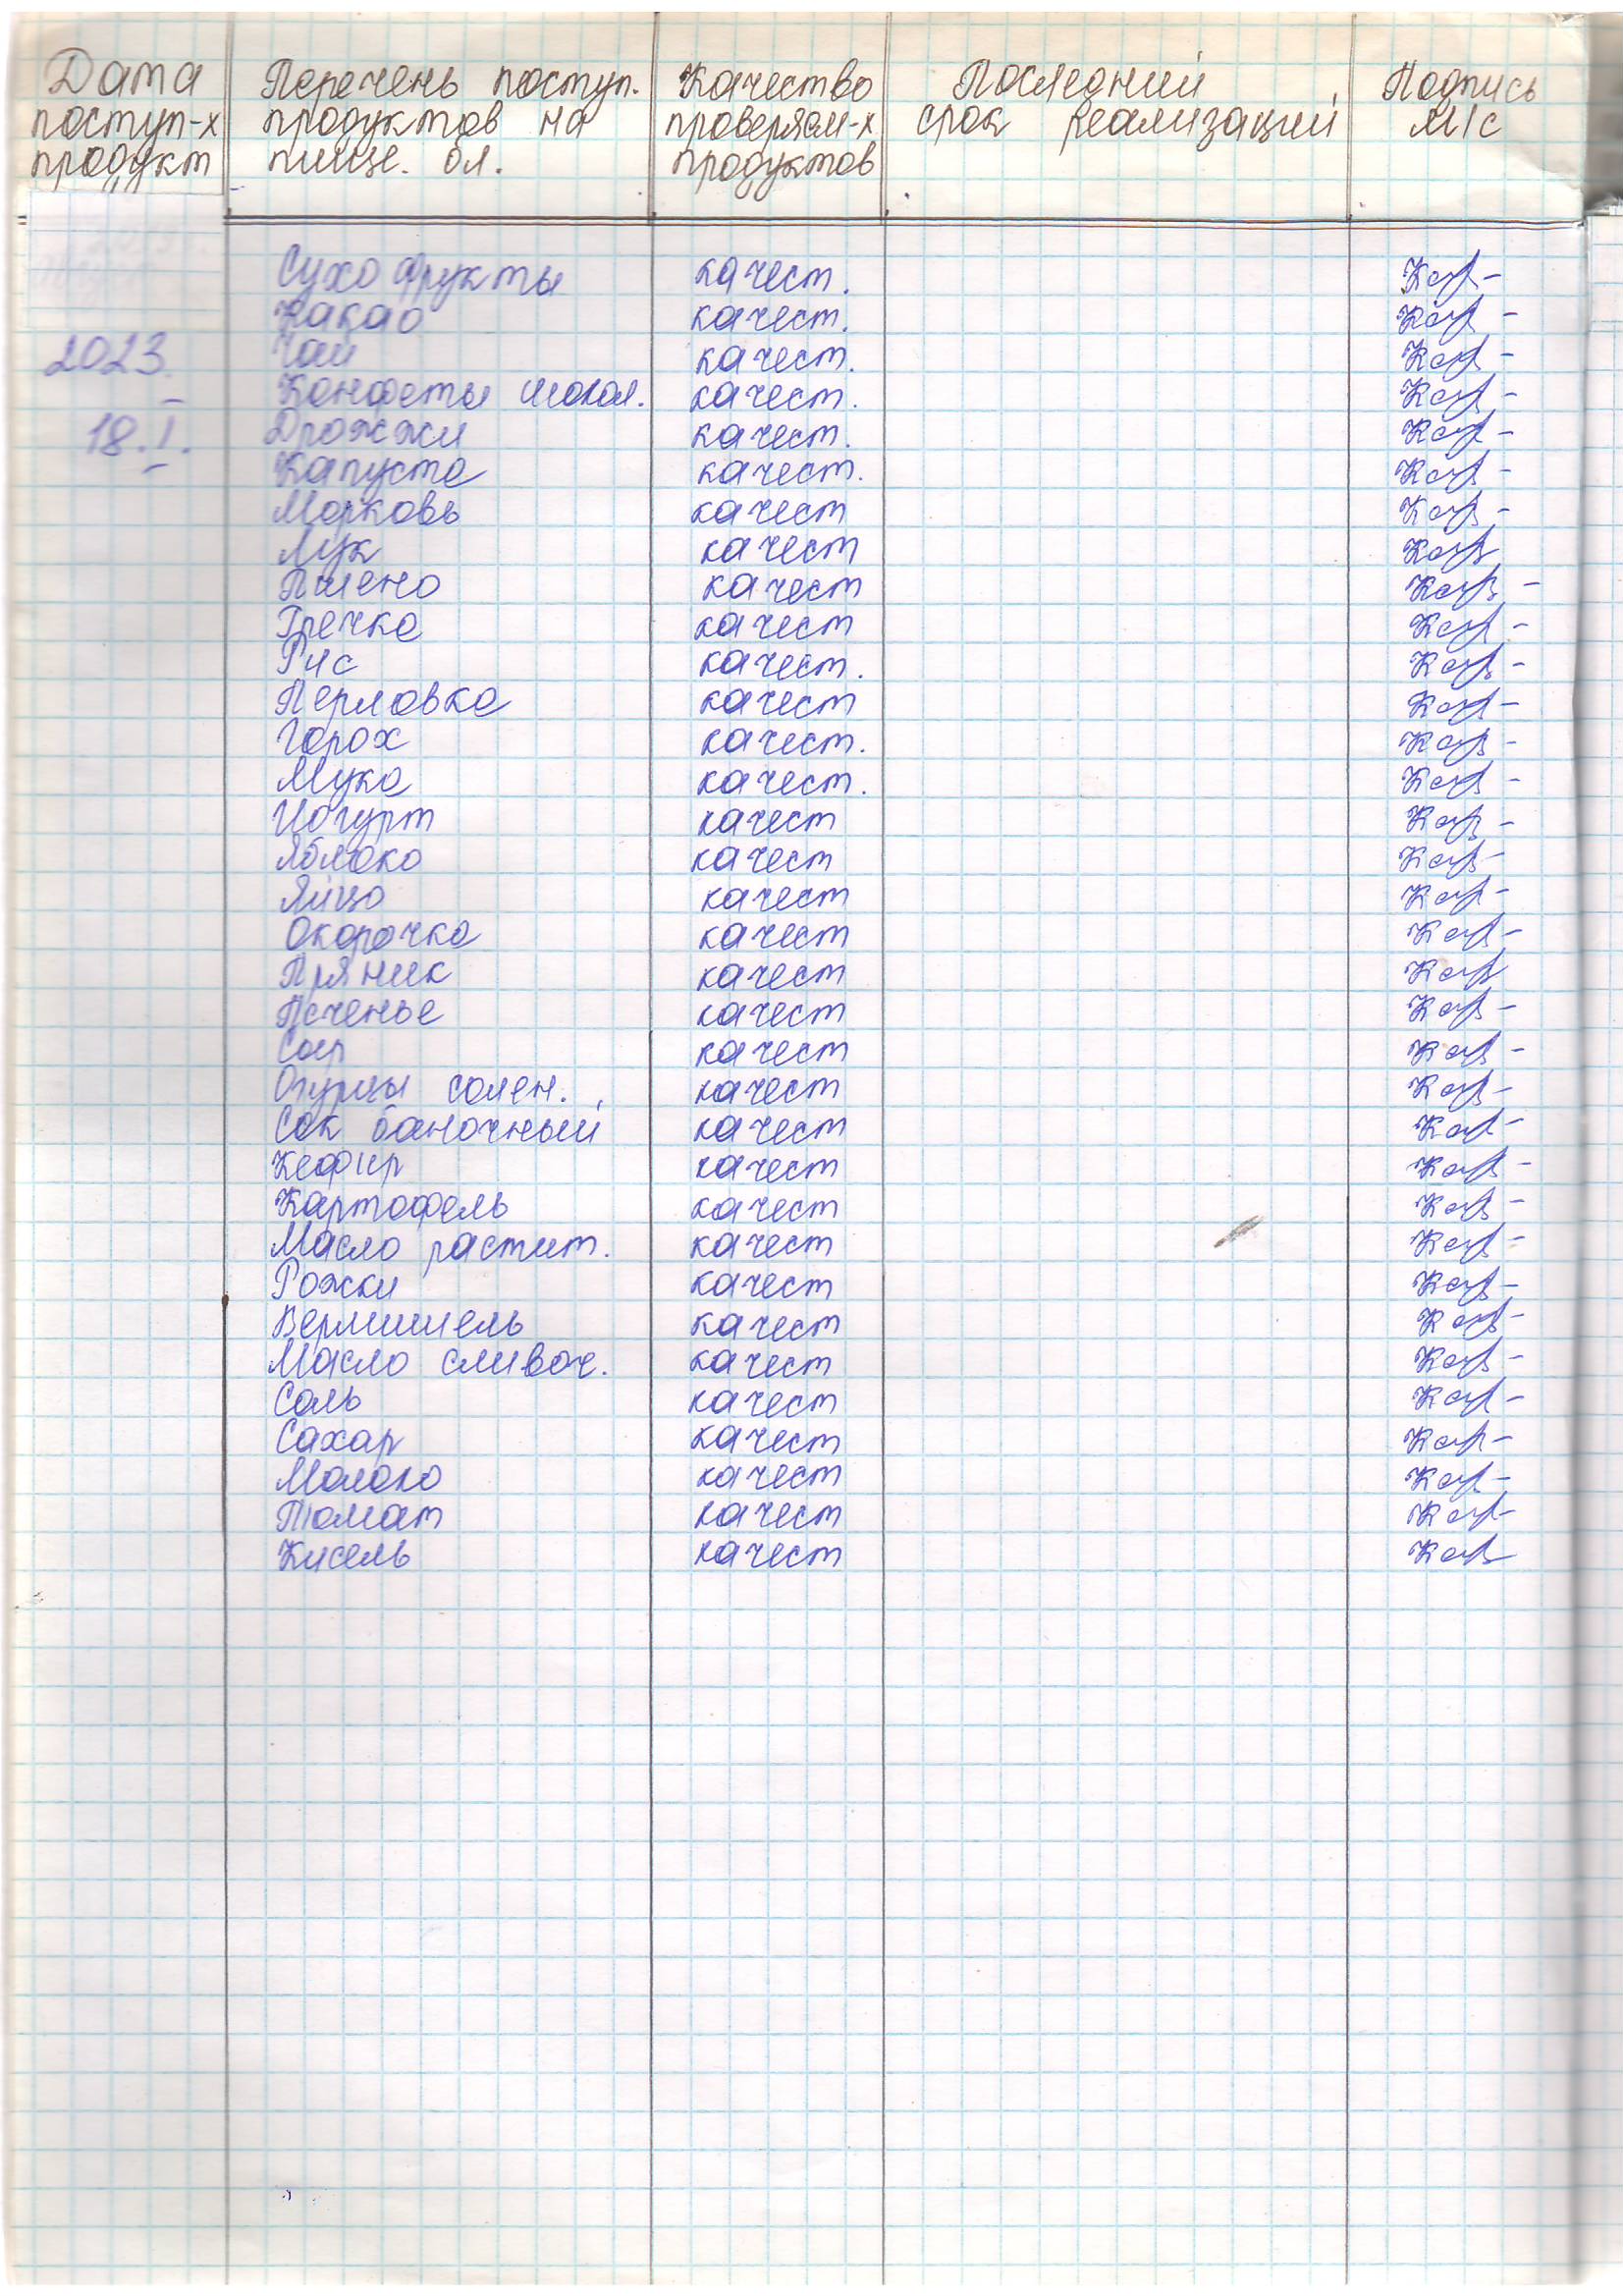 Дата поступ-х продукт
Перечень поступ. продуктов на пище. бл.
Качество проверяем-х продуктов
Последний срок реализаций
Подпись м/с
Сухофрукты качест.
Какао качест.
2023. Чай качест.
Конфеты шокол. качест.
18.I. Дрожжи качест.
Капуста качест.
Морковь качест
Лук качест
Пшено качест
Гречка качест
Рис качест.
Перловка качест
Горох качест.
Мука качест.
Йогурт качест
Яблоко качест
Яйцо качест
Окорочка качест
Пряник качест
Печенье качест
Сыр качест
Огурцы солен. качест
Сок баночный качест
Кефир качест
Картофель качест
Масло растит. качест
Рожки качест
Вермишель качест
Масло сливоч. качест
Соль качест
Сахар качест
Молоко качест
Томат качест
Кисель качест